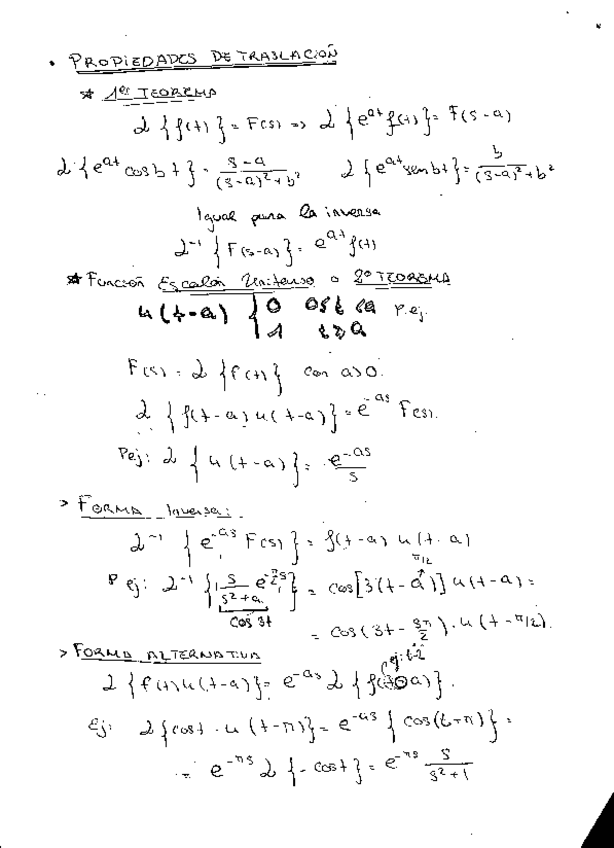 • PROPIEDADES DE TRASLACIÓN
* 1er TEOREMA
ℒ {f(t)} = F(s) => ℒ {e^{at} f(t)} = F(s-a)
ℒ {e^{at} cos b t} = \frac{s-a}{(s-a)²+b²} ℒ {e^{at} sen bt} = \frac{b}{(s-a)²+b²}
Igual para la inversa
ℒ⁻¹ {F(s-a)} = e^{at} f(t)
* Función Escalón Unitario o 2º TEOREMA
u(t-a) { 0 0≤t<a P.ej.
1 t≥a
F(s) = ℒ {f(t)} con a>0.
ℒ {f(t-a) u(t-a)} = e^{-as} F(s).
Pej: ℒ {u(t-a)} = \frac{e^{-as}}{s}
> FORMA Inversa:
ℒ⁻¹ {e^{-as} F(s)} = f(t-a) u(t-a)
π/2
P ej: ℒ⁻¹ {\frac{s}{s²+9} e^{-\frac{π}{2}s}} = cos[3(t-a)] u(t-a) =
cos 3t
= cos(3t - \frac{3π}{2}) . u(t-π/2).
> FORMA ALTERNATIVA
ej: t-2
ℒ {f(t) u(t-a)} = e^{-as} ℒ {f(t+a)}.
Ej: ℒ {cos t · u(t-π)} = e^{-as} {cos(t+π)} =
= e^{-πs} ℒ {-cos t} = e^{-πs} \frac{s}{s²+1}